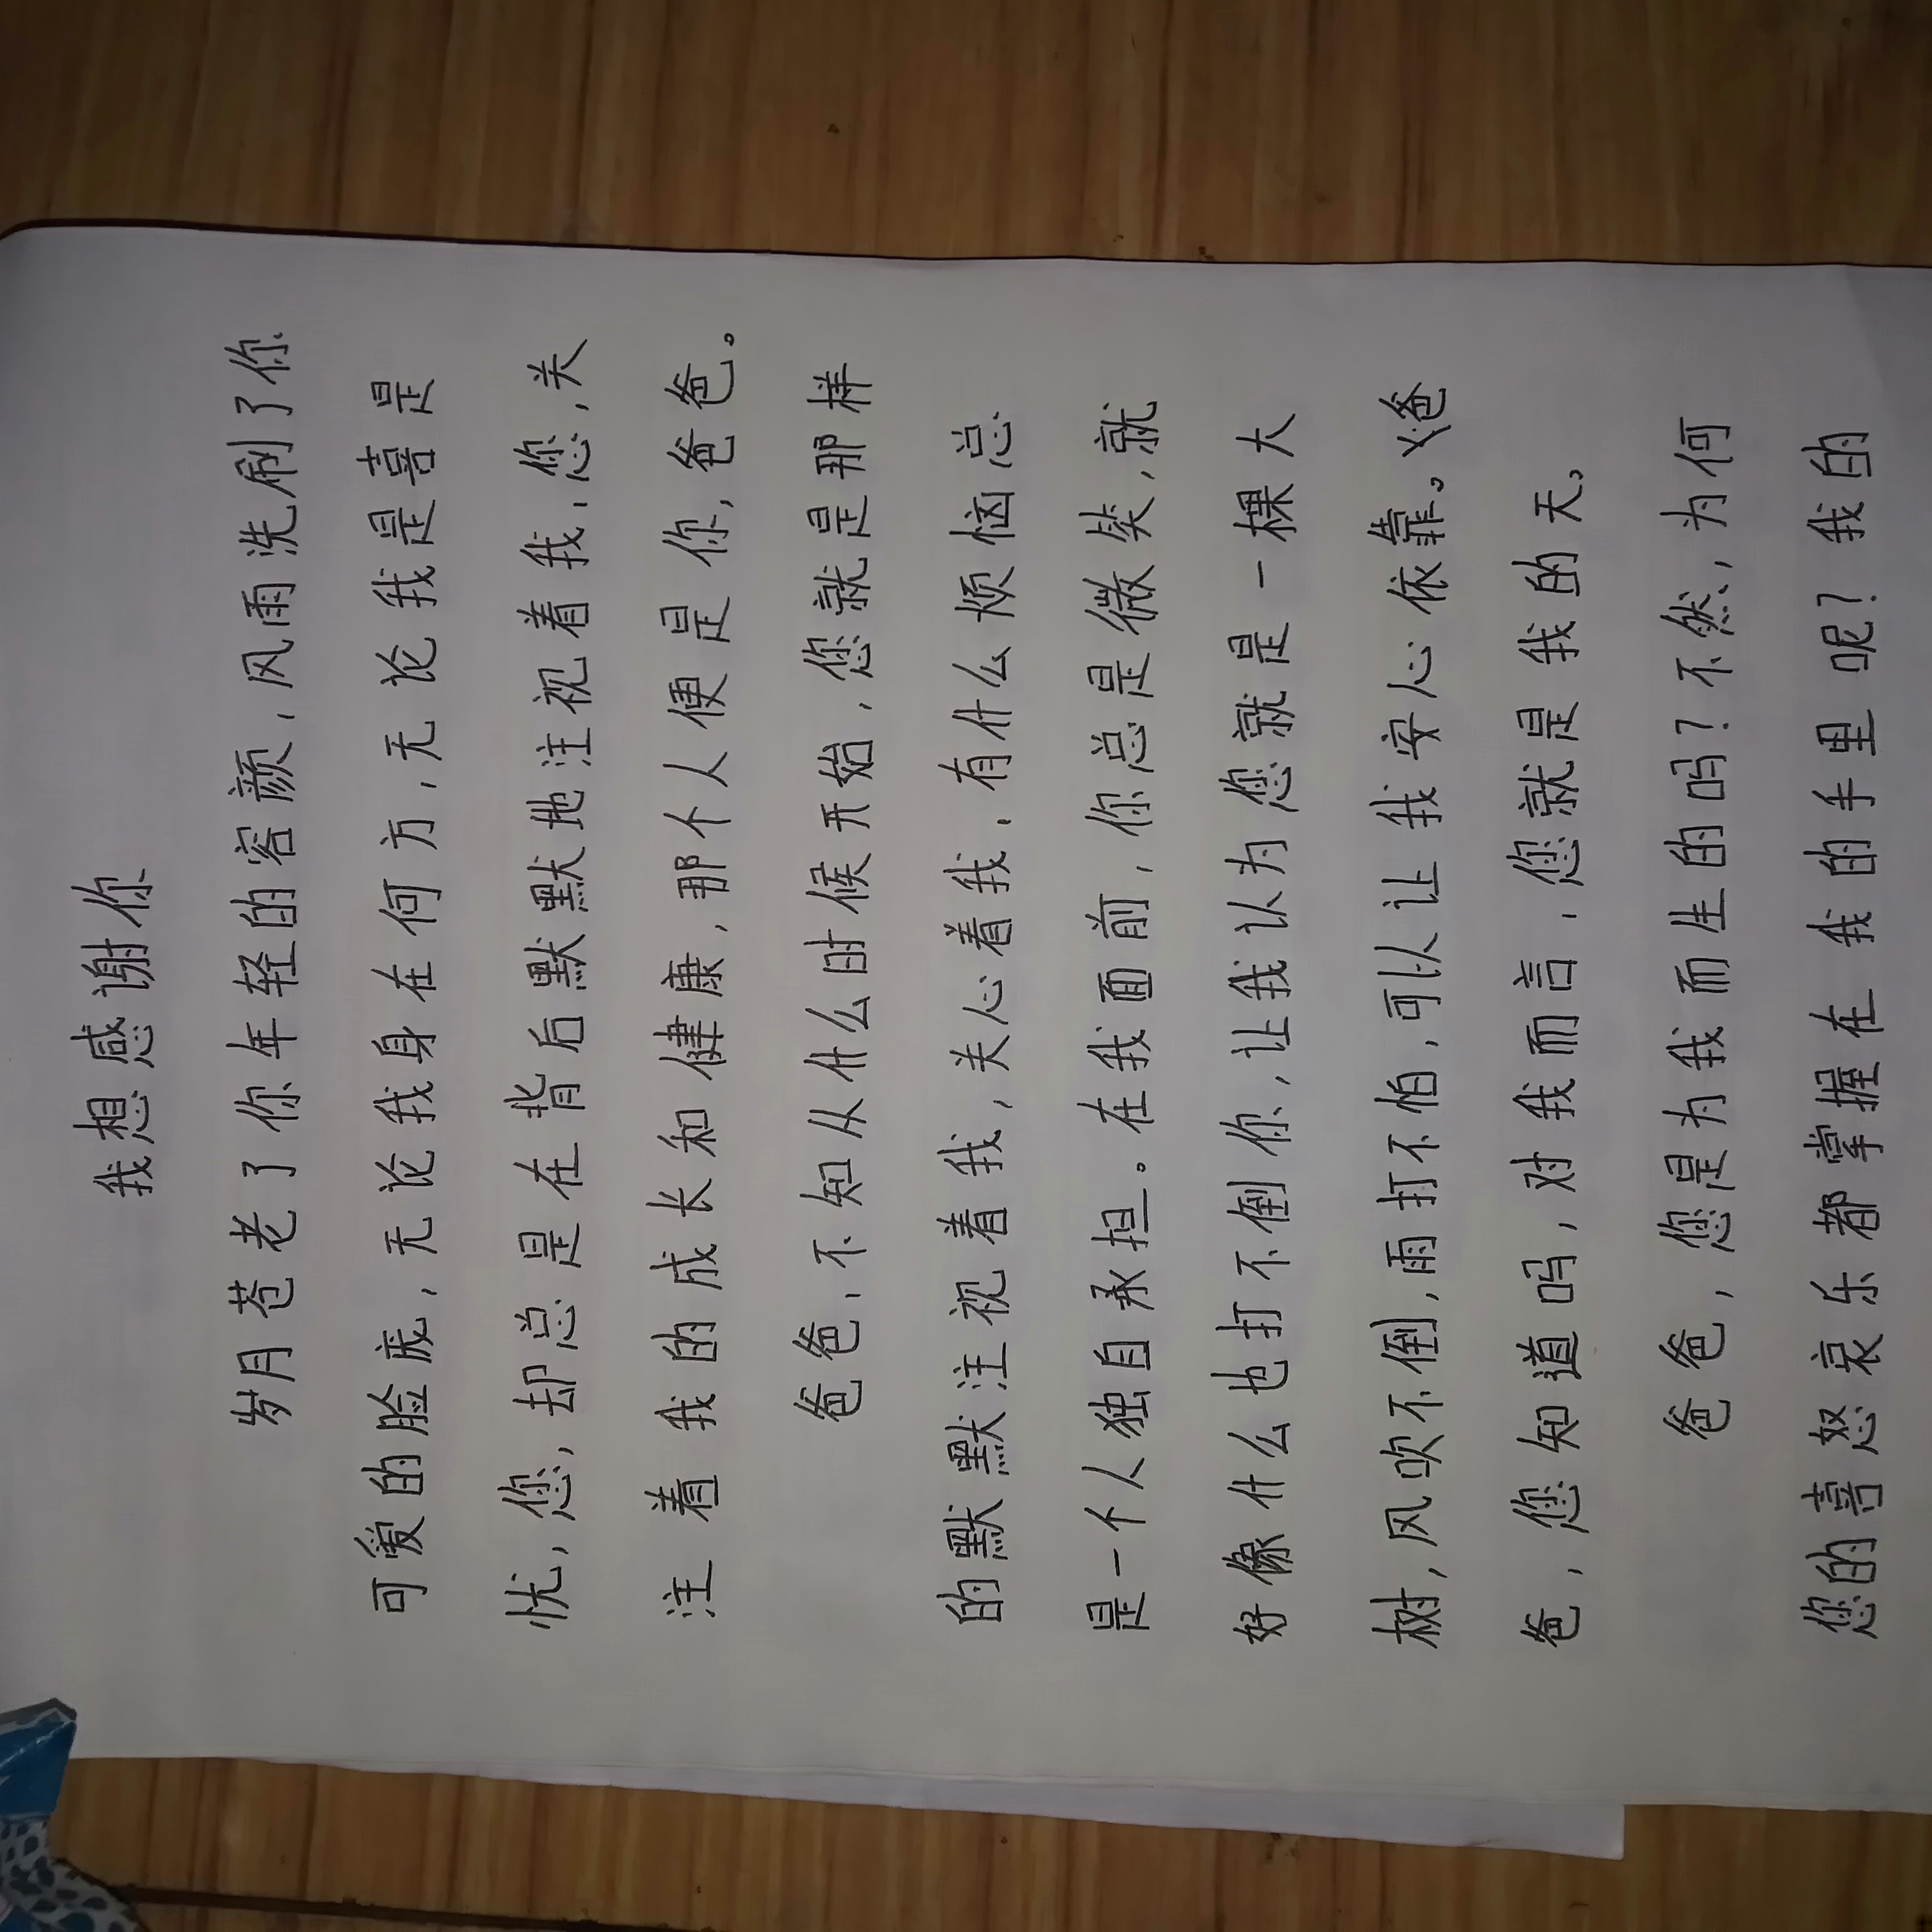 我想感谢你
岁月苍老了你年轻的容颜,风雨洗刷了你
可爱的脸庞,无论我身在何方,无论我是喜是
忧,您,却总是在背后默默地注视着我,您,关
注着我的成长和健康,那个人便是你,爸爸。
爸爸,不知从什么时候开始,您就是那样
的默默注视着我,关心着我,有什么烦恼总
是一个人独自承担。在我面前,你总是微笑,就
好像什么也打不倒你,让我认为您就是一棵大
树,风吹不倒,雨打不怕,可以让我安心依靠。爸
爸,您知道吗,对我而言,您就是我的天。
爸爸,您是为我而生的吗?不然,为何
您的喜怒哀乐都掌握在我的手里呢?我的